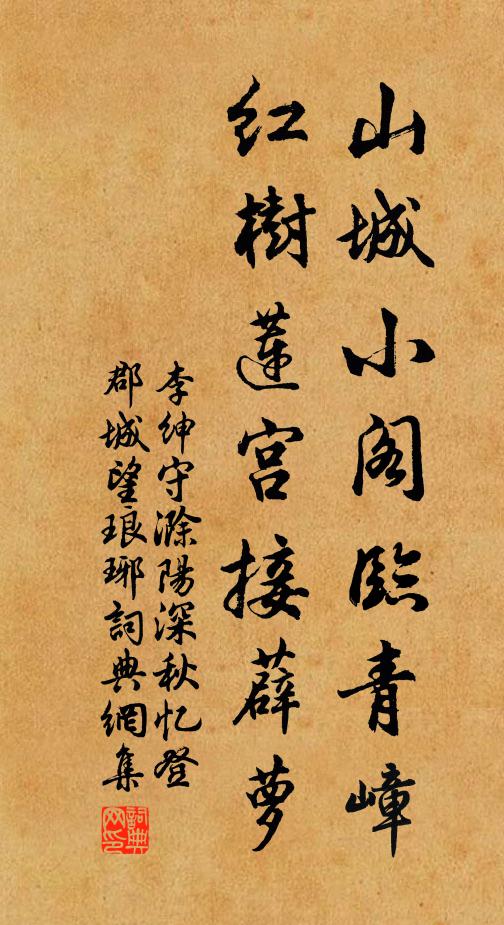 山城小阁临青嶂
红樹蓮宫接薜萝
李绅守滁陽深秋忆登
郡城望琅琊詞典網集
詞典网印